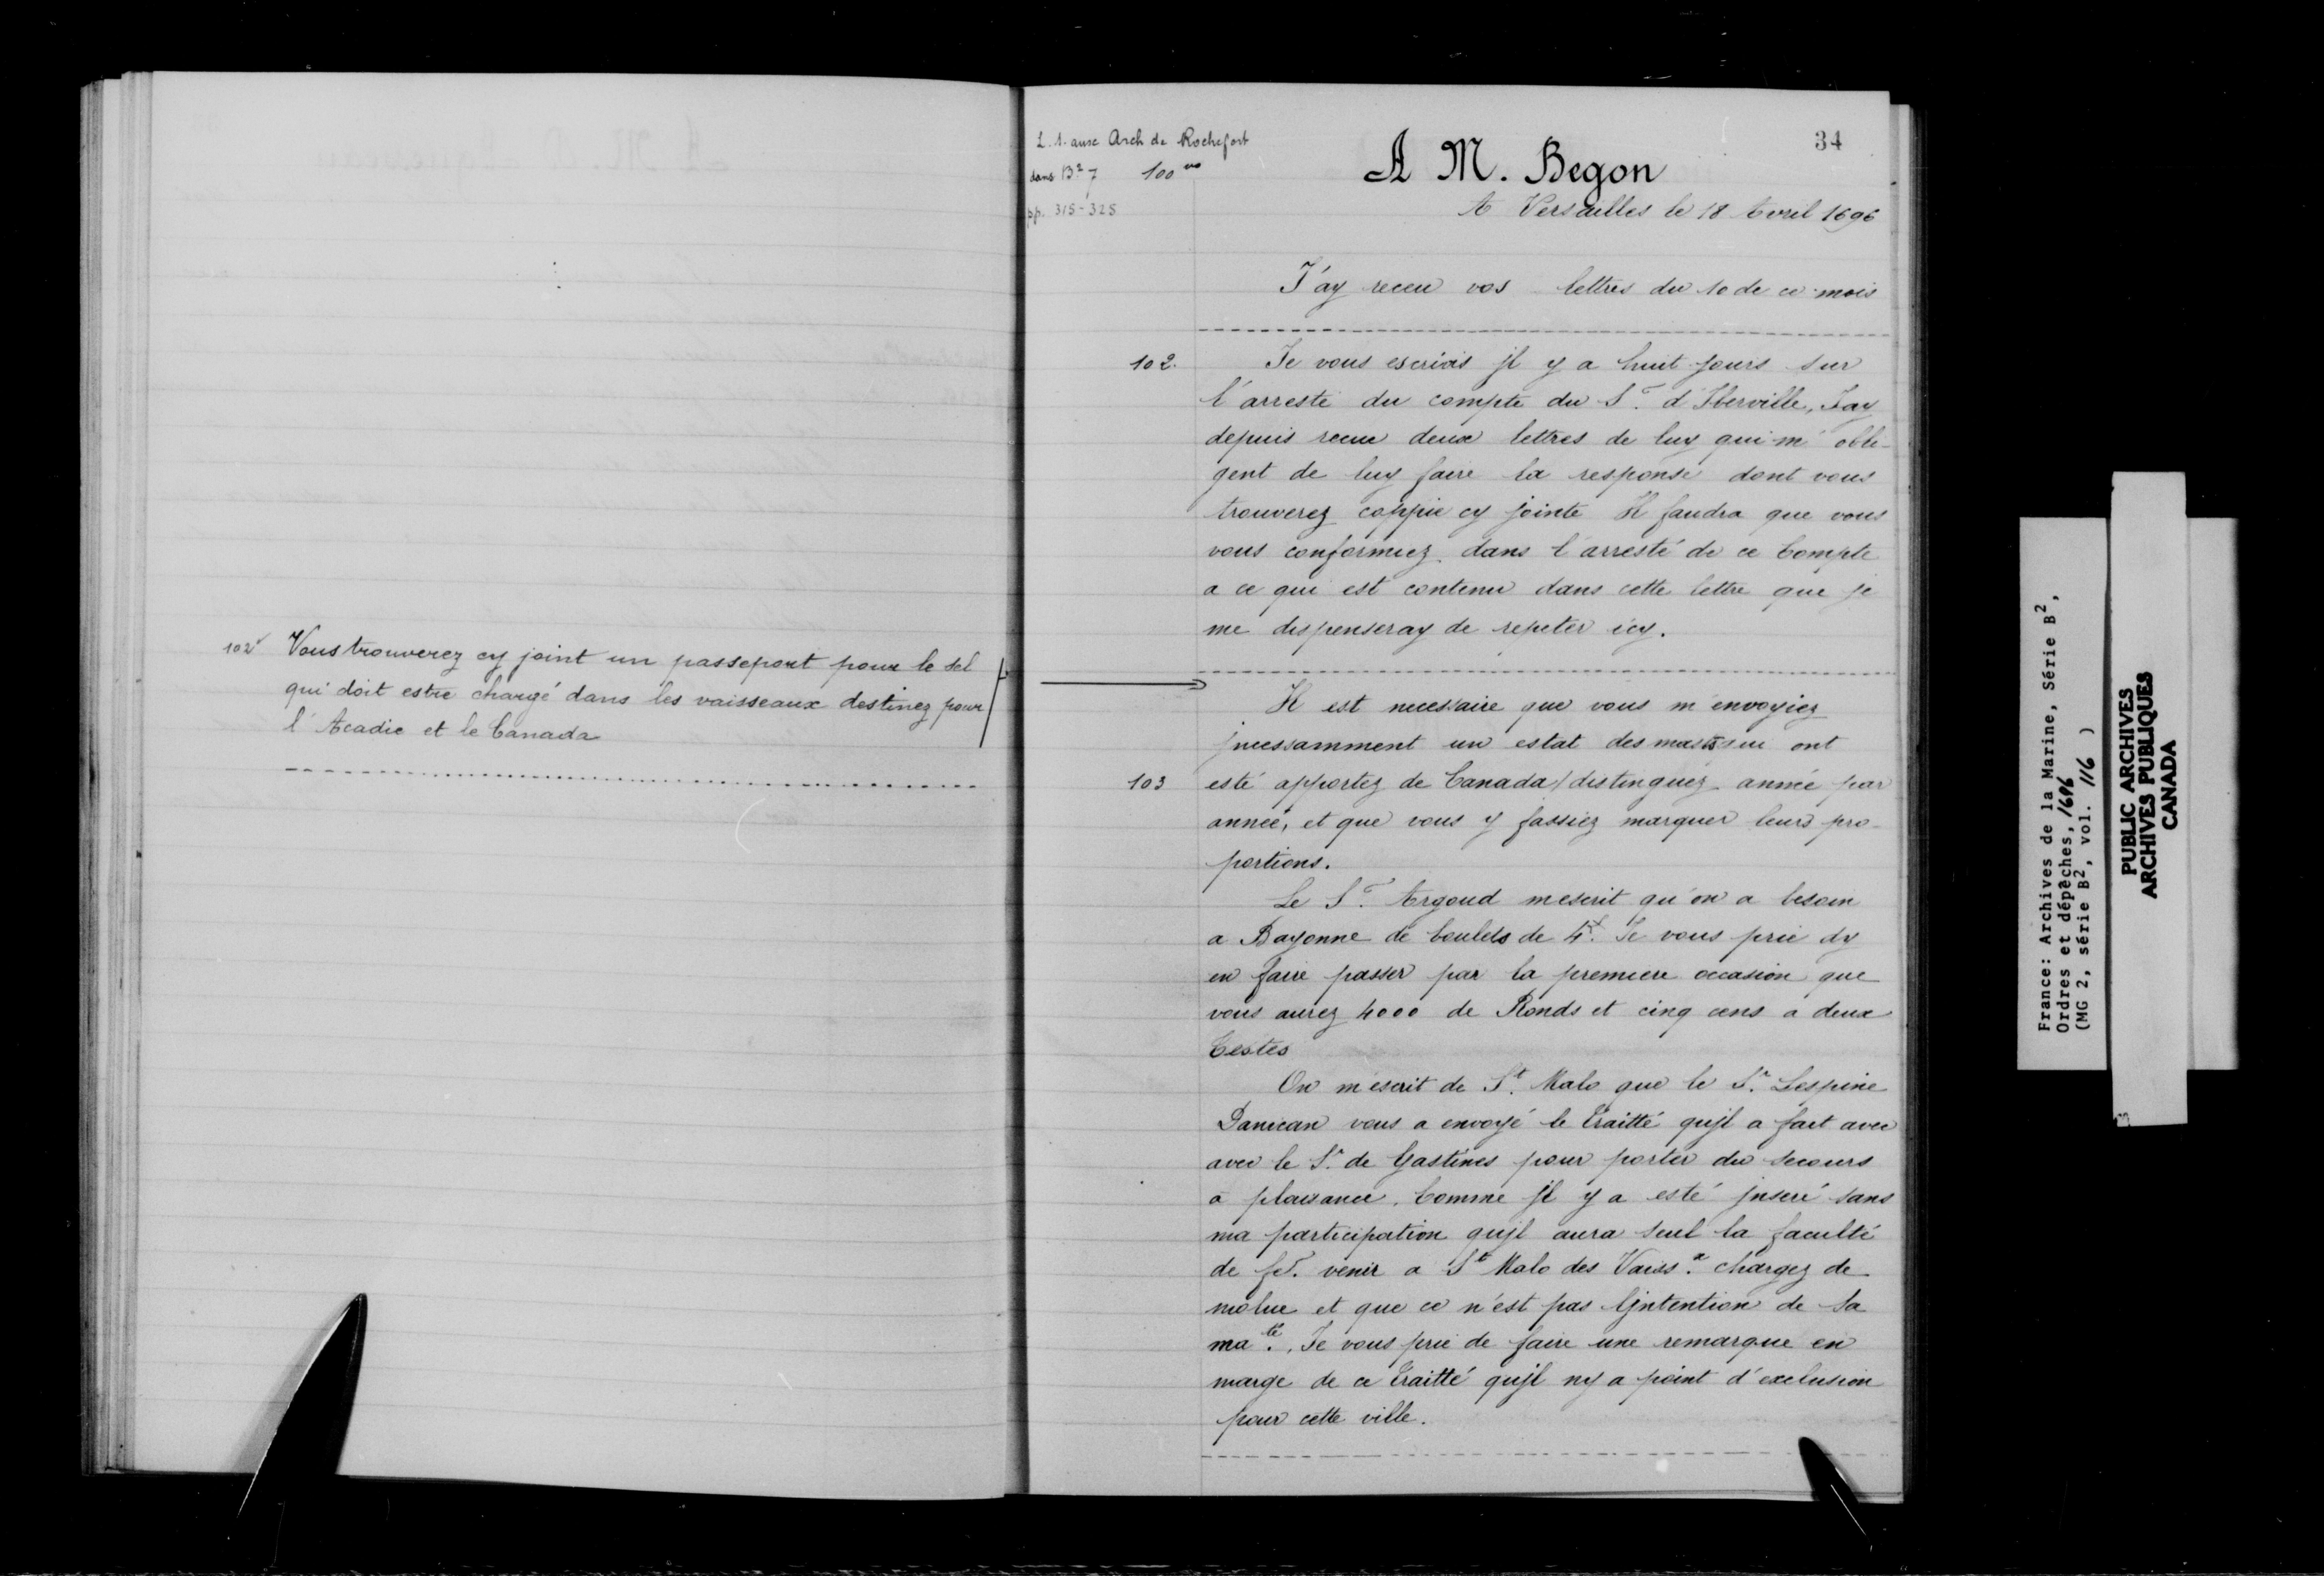 102v Vous trouverez cy joint un passeport pour le sel
qui doit estre chargé dans les vaisseaux destinez pour
l'Acadie et le Canada
L. s. aux Arch de Rochefort
dans B² 7 100 vo
pp. 315-325
34
A M. Begon
A Versailles le 18 Avril 1696
J'ay receu vos lettres du 10 de ce mois
102. Je vous escrivis jl y a huit jours sur
l'arresté du compte du Sr. d'Iberville, Jay
depuis receu deux lettres de luy qui m'obli-
gent de luy faire la response dont vous
trouverez coppie cy jointe Il faudra que vous
vous conformiez dans l'arresté de ce Compte
a ce qui est contenu dans cette lettre que je
me dispenseray de repeter icy.
Il est necessaire que vous m'envoyiez
jncessamment un estat des masts qui ont
103 esté apportez de Canada/distinguéz année par
année, et que vous y fassiez marquer leurs pro-
portions.
Le Sr. Argoud mescrit qu'on a besoin
a Bayonne de boulets de 4 Je vous prie dy
en faire passer par la premiere occasion que
vous aurez 4000 de Ronds et cinq cens a deux
testes
On m'escrit de St. Malo que le Sr. Lespine
Danican vous a envoyé le traitté qujl a fait avec
avec le Sr. de Gastines pour porter du secours
a plaisance. Comme jl y a esté jnseré sans
ma participation qujl aura seul la faculté
de fe. venir a St Malo des Vaiss.x chargez de
molue et que ce n'est pas l'jntention de Sa
ma.té, Je vous prie de faire une remarque en
marge de ce traitté qujl ny a point d'exclusion
pour cette ville.
France: Archives de la Marine, Série B²,
Ordres et dépêches, 1696
(MG 2, série B², vol. 116 )
PUBLIC ARCHIVES
ARCHIVES PUBLIQUES
CANADA